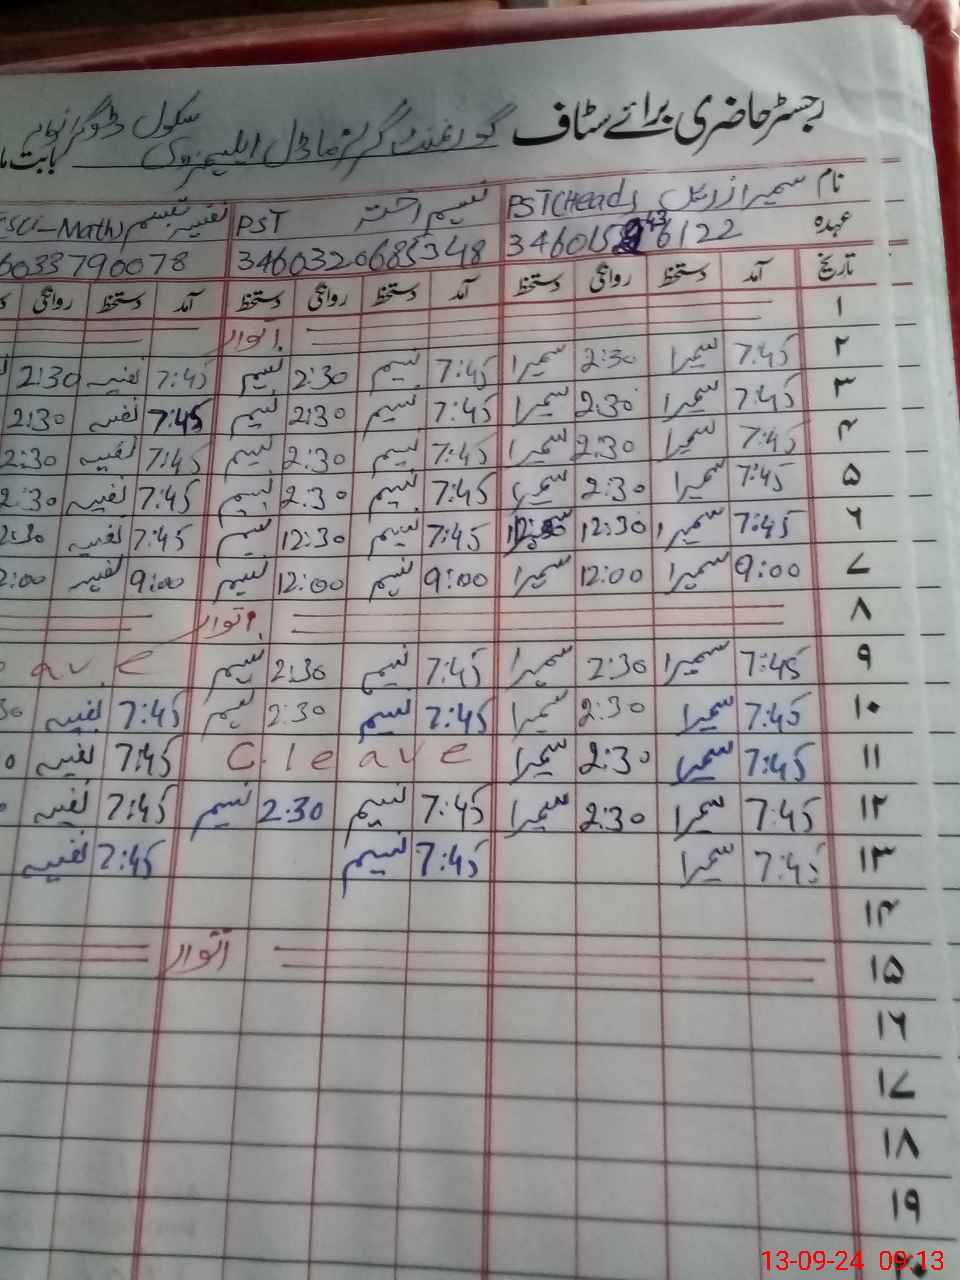 رجسٹر حاضری برائے سٹاف گورنمنٹ گرلز ماڈل ایلیمنٹری سکول بابت
نام سمیرا PST(Head) نسیم اختر PST نفیسہ تبسم
عہدہ 3460320685348
تاریخ آمد دستخط روانگی دستخط آمد دستخط روانگی دستخط آمد دستخط روانگی
۱ اتوار
۲ 7:45 سمیرا 2:30 سمیرا 7:45 نسیم 2:30 نسیم 7:45 نفیسہ 2:30
۳ 7:45 سمیرا 2:30 سمیرا 7:45 نسیم 2:30 نسیم 7:45 نفیسہ 2:30
۴ 7:45 سمیرا 2:30 سمیرا 7:45 نسیم 2:30 نسیم 7:45 نفیسہ 2:30
۵ 7:45 سمیرا 2:30 سمیرا 7:45 نسیم 2:30 نسیم 7:45 نفیسہ 2:30
۶ 7:45 سمیرا 12:30 7:45 نسیم 12:30 نسیم 7:45 نفیسہ
۷ 9:00 سمیرا 12:00 سمیرا 9:00 نسیم 12:00 نسیم 9:00 نفیسہ
۸ اتوار
۹ 7:45 سمیرا 2:30 سمیرا 7:45 نسیم 2:30 نسیم
۱۰ 7:45 سمیرا 2:30 سمیرا 7:45 نسیم 2:30 نسیم 7:45 نفیسہ
۱۱ 7:45 سمیرا 2:30 سمیرا C.leave 7:45 نفیسہ
۱۲ 7:45 سمیرا 2:30 سمیرا 7:45 نسیم 2:30 نسیم 7:45 نفیسہ
۱۳ 7:45 سمیرا 7:45 نسیم 7:45 نفیسہ
۱۴
۱۵ اتوار
۱۶
۱۷
۱۸
۱۹
13-09-24 09:13